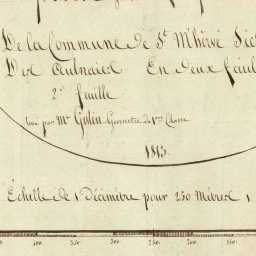 De la Commune de St. M'hervé
Des Aulnais En deux feuil
2e. feuille
Levé par Mr. Galin Géometre de 1ere Classe
1813.
Échelle de 1 Décimètre pour 250 Mètres